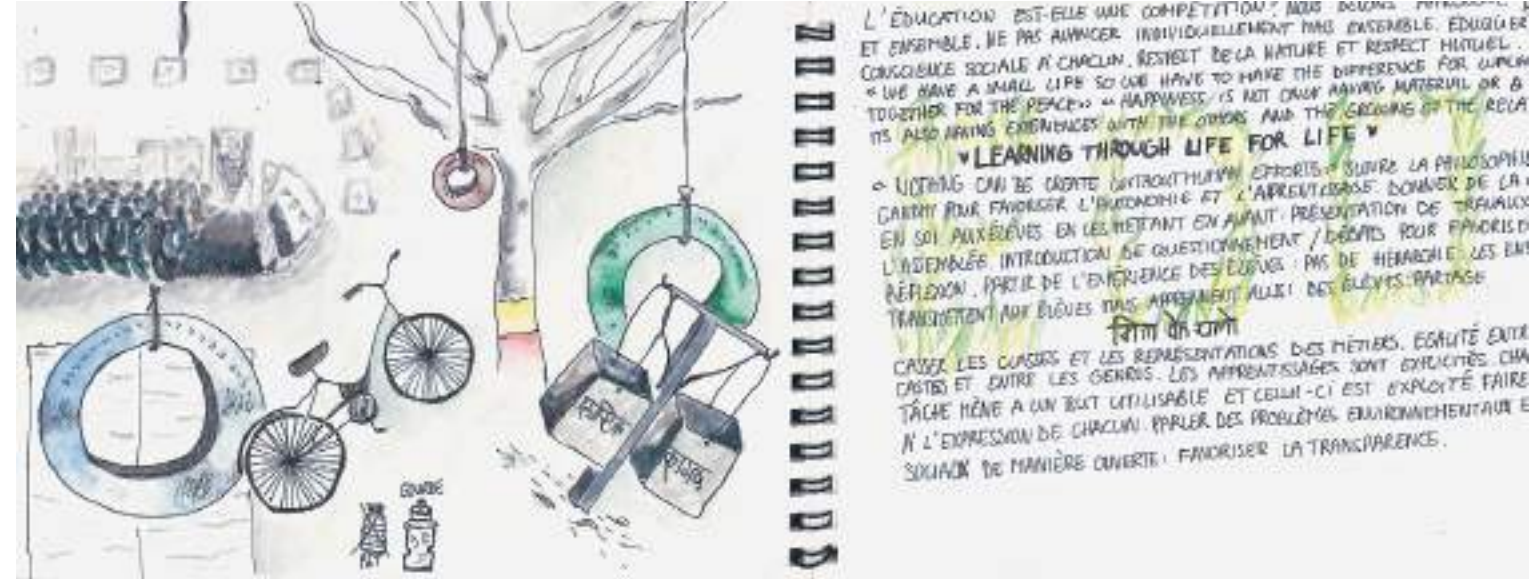 GOURDE
L'ÉDUCATION EST-ELLE UNE COMPÉTITION? NOUS DEVONS
ET ENSEMBLE. NE PAS AVANCER INDIVIDUELLEMENT MAIS ENSEMBLE. EDUQUER
CONSCIENCE SOCIALE A CHACUN. RESPECT DE LA NATURE ET RESPECT MUTUEL.
"WE HAVE A SMALL LIFE SO WE HAVE TO MAKE THE DIFFERENCE FOR
TOGETHER FOR THE PEACE" "HAPPINESS IS NOT ONLY HAVING MATERIAL OR
ITS ALSO HAVING EXPERIENCES WITH THE OTHERS AND THE GROWING OF THE RELA
♥ LEARNING THROUGH LIFE FOR LIFE ♥
"NOTHING CAN BE CREATE WITHOUT HUMAN EFFORTS" SUIVRE LA PHILOSOPHIE
GANDHI POUR FAVORISER L'AUTONOMIE ET L'APPRENTISSAGE. DONNER DE LA
EN SOI AUX ÉLÈVES EN LES METTANT EN AVANT: PRÉSENTATION DE TRAVAUX
L'ASSEMBLÉE INTRODUCTION DE QUESTIONNEMENT / DÉBATS POUR FAVORISER
RÉFLEXION. PARTIR DE L'EXPÉRIENCE DES ÉLÈVES: PAS DE HIÉRARCHIE: LES
TRANSMETTENT AUX ÉLÈVES MAIS APPRENNENT AUSSI DES ÉLÈVES: PARTAGE
CASSER LES CLASSES ET LES REPRÉSENTATIONS DES MÉTIERS. EGALITÉ ENTRE
CASTES ET ENTRE LES GENRES. LES APPRENTISSAGES SONT EXPLICITÉS. CHA
TÂCHE MÈNE A UN BUT UTILISABLE ET CELUI-CI EST EXPLOITÉ FAIRE
A L'EXPRESSION DE CHACUN. PARLER DES PROBLÈMES ENVIRONNEMENTAUX E
SOCIAUX DE MANIÈRE OUVERTE: FAVORISER LA TRANSPARENCE.